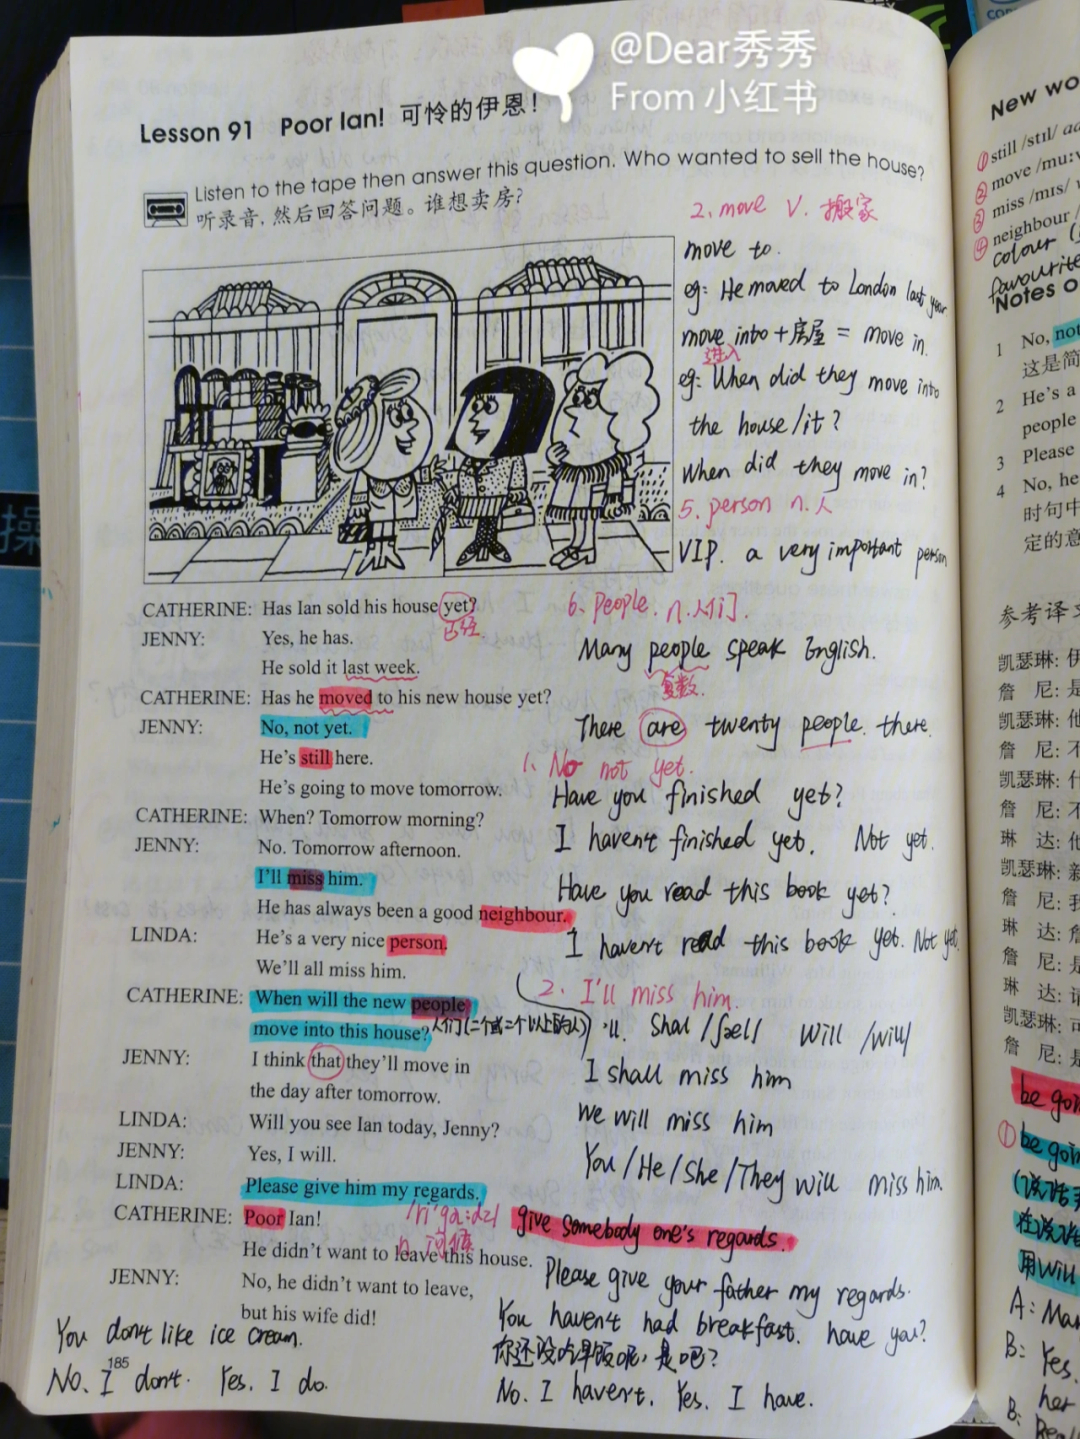 @Dear秀秀
From 小红书
Lesson 91 Poor Ian! 可怜的伊恩!
Listen to the tape then answer this question. Who wanted to sell the house?
听录音,然后回答问题。谁想卖房?
2. move v. 搬家
move to.
eg: He moved to London last year
move into+房屋 = move in.
进入
eg: When did they move into
the house/it?
When did they move in?
5. person n.人
VIP. a very important person
CATHERINE: Has Ian sold his house yet?
已经
JENNY: Yes, he has.
He sold it last week.
CATHERINE: Has he moved to his new house yet?
JENNY: No, not yet.
He's still here.
He's going to move tomorrow.
CATHERINE: When? Tomorrow morning?
JENNY: No. Tomorrow afternoon.
I'll miss him.
He has always been a good neighbour.
LINDA: He's a very nice person.
We'll all miss him.
CATHERINE: When will the new people
move into this house?
人们(二个或二个以上的人)
JENNY: I think that they'll move in
the day after tomorrow.
LINDA: Will you see Ian today, Jenny?
JENNY: Yes, I will.
LINDA: Please give him my regards.
/ri'ga:dz/
n. 问候
CATHERINE: Poor Ian!
He didn't want to leave this house.
JENNY: No, he didn't want to leave,
but his wife did!
6. people. n.人们.
Many people speak English.
复数.
There are twenty people there.
1. No not yet.
Have you finished yet?
I haven't finished yet. Not yet.
Have you read this book yet?
I haven't read this book yet. Not yet.
2. I'll miss him.
'll. Shal /ʃæl/ will /will/
I shall miss him
We will miss him
You/He/She/They will miss him.
give somebody one's regards.
Please give your father my regards.
You haven't had breakfast. have you?
你还没吃早饭呢,是吧?
No. I haven't. Yes. I have.
You don't like ice cream.
185
No. I don't. Yes. I do.
New wo
①still /stɪl/ ad
②move /mu:v
③miss /mɪs/ v
④neighbour /
colour
favourite
Notes o
1 No, not
这是简
2 He's a
people
3 Please
4 No, he
时句中
定的意
参考译文
凯瑟琳: 伊
詹 尼: 是
凯瑟琳: 他
詹 尼: 不
凯瑟琳: 什
詹 尼: 不
琳 达: 他
凯瑟琳: 新
詹 尼: 我
琳 达: 詹
詹 尼: 是
琳 达: 请
凯瑟琳: 可
詹 尼: 是
be goin
①be goin
在说话
用will
A: Mar
B: Yes.
her
B: Real
操